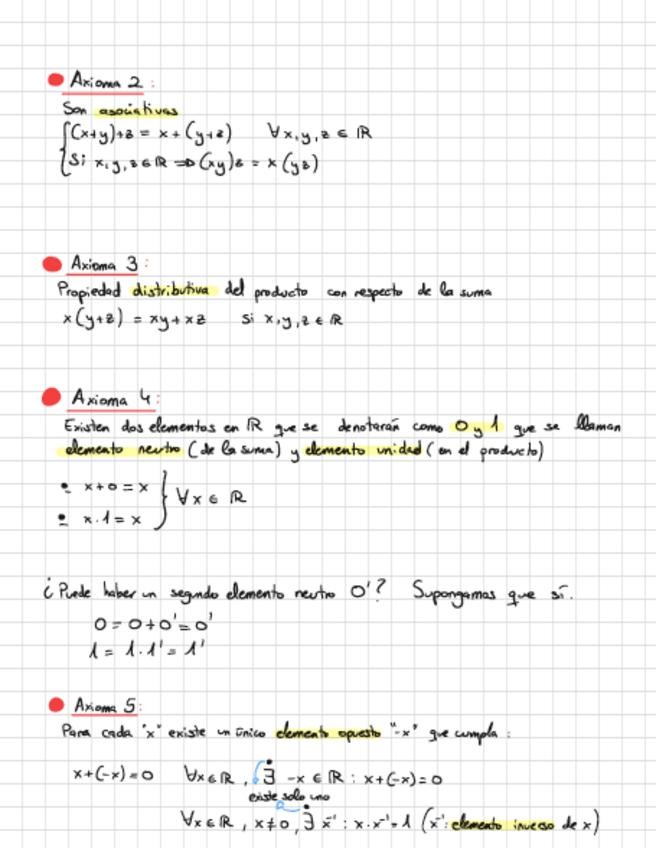 Axioma 2:
Son asociativas
(x+y)+z = x+(y+z)  ∀x,y,z ∈ ℝ
Si x,y,z ∈ ℝ ⇒ (xy)z = x(yz)
Axioma 3:
Propiedad distributiva del producto con respecto de la suma
x(y+z) = xy+xz  si x,y,z ∈ ℝ
Axioma 4:
Existen dos elementos en ℝ que se denotarán como 0 y 1 que se llaman
elemento neutro (de la suma) y elemento unidad (en el producto)
• x+0=x
} ∀x ∈ ℝ
• x·1=x
¿Puede haber un segundo elemento neutro 0'? Supongamos que sí.
0=0+0'=0'
1=1·1'=1'
Axioma 5:
Para cada "x" existe un único elemento opuesto "-x" que cumpla:
x+(-x)=0  ∀x∈ℝ, ∃̇ -x∈ℝ : x+(-x)=0
existe solo uno
∀x∈ℝ, x≠0, ∃̇ x⁻¹ : x·x⁻¹=1 (x⁻¹: elemento inverso de x)